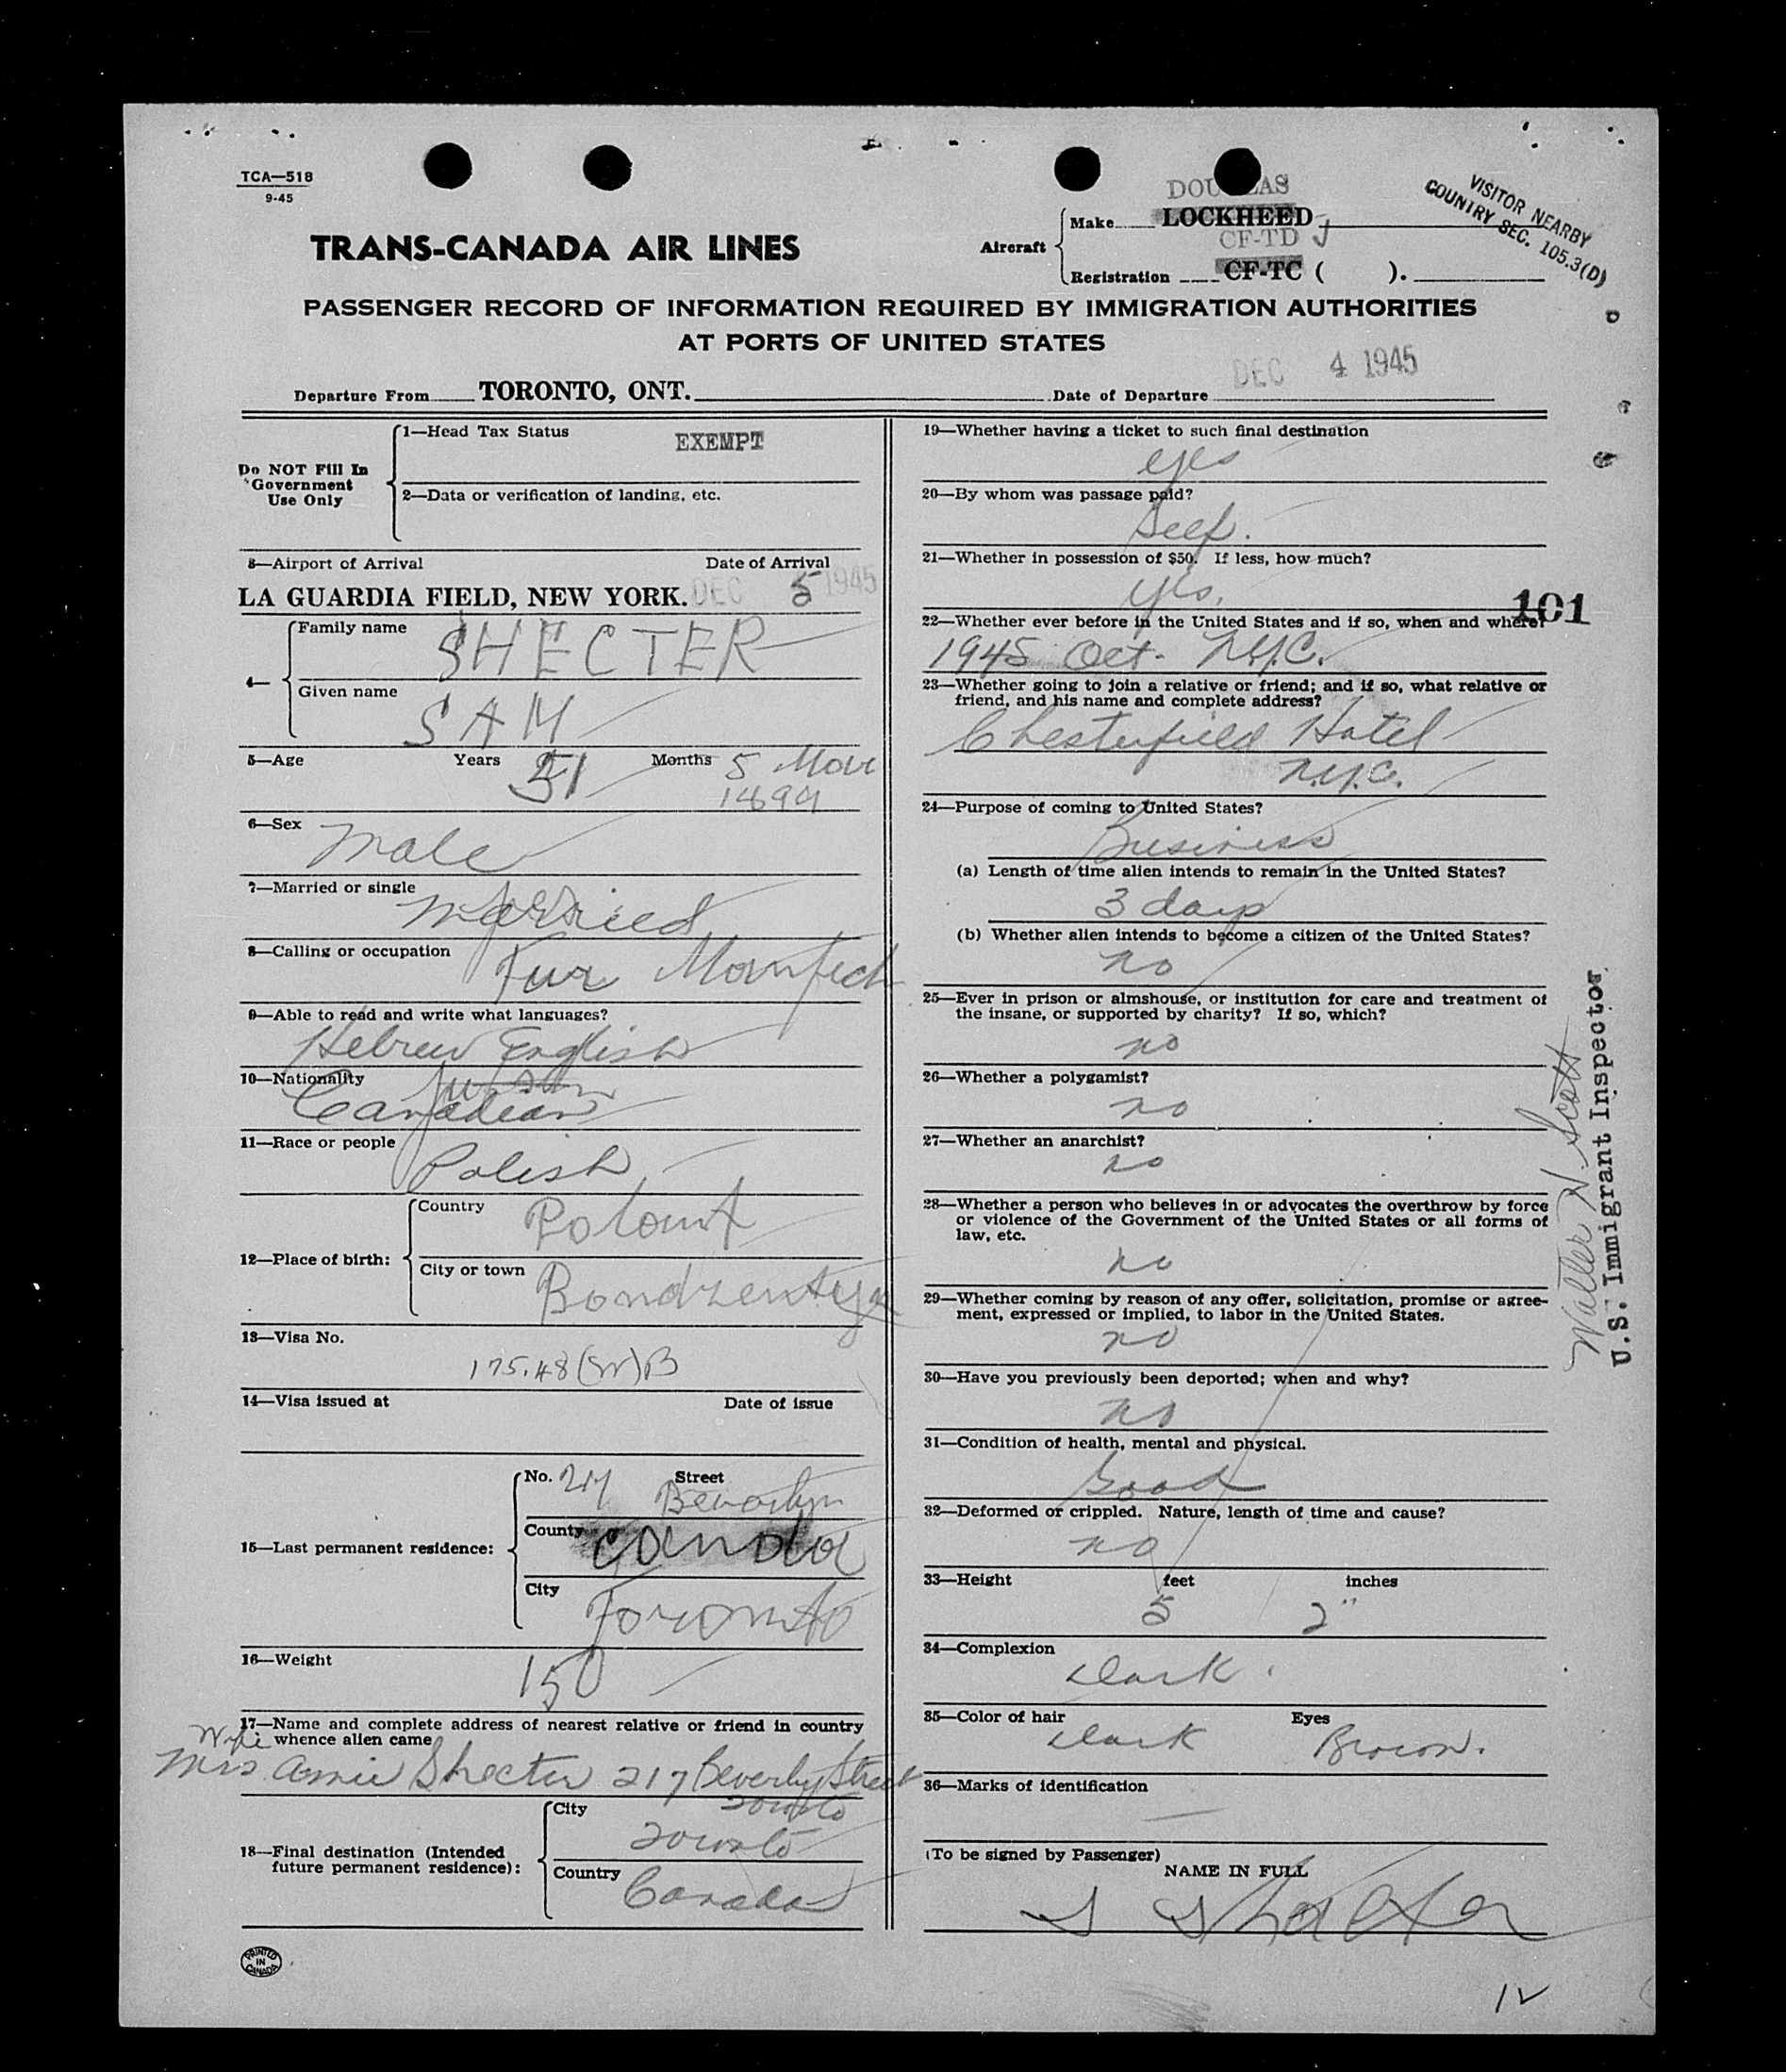 TCA—518
9-45
TRANS-CANADA AIR LINES
Aircraft
DOUGLAS
Make LOCKHEED
CF-TD J
Registration CF-TC ( ).
VISITOR NEARBY
COUNTRY SEC. 105.3(D)
PASSENGER RECORD OF INFORMATION REQUIRED BY IMMIGRATION AUTHORITIES
AT PORTS OF UNITED STATES
Departure From TORONTO, ONT. Date of Departure DEC 4 1945
Do NOT Fill In
Government
Use Only
1—Head Tax Status EXEMPT
2—Data or verification of landing, etc.
3—Airport of Arrival Date of Arrival
LA GUARDIA FIELD, NEW YORK. DEC 5 1945
4—
Family name SHECTER
Given name SAM
5—Age Years 51 Months 5
1894
6—Sex Male
7—Married or single Married
8—Calling or occupation Fur
9—Able to read and write what languages?
Hebrew English
10—Nationality
Canadian
11—Race or people Polish
12—Place of birth:
Country
City or town
13—Visa No.
175.48
14—Visa issued at Date of issue
15—Last permanent residence:
No. 217 Street
County Canada
City Toronto
16—Weight 150
17—Name and complete address of nearest relative or friend in country
Wife whence alien came
Mrs Annie Shecter 217 Beverly Street
Toronto
18—Final destination (Intended
future permanent residence):
City Toronto
Country Canada
PRINTED
IN
CANADA
19—Whether having a ticket to such final destination
yes
20—By whom was passage paid?
Self.
21—Whether in possession of $50. If less, how much?
yes.
101
22—Whether ever before in the United States and if so, when and where?
1945 Oct. N.Y.C.
23—Whether going to join a relative or friend; and if so, what relative or
friend, and his name and complete address?
Chesterfield Hotel
N.Y.C.
24—Purpose of coming to United States?
Business
(a) Length of time alien intends to remain in the United States?
3 days
(b) Whether alien intends to become a citizen of the United States?
no
25—Ever in prison or almshouse, or institution for care and treatment of
the insane, or supported by charity? If so, which?
no
26—Whether a polygamist?
no
27—Whether an anarchist?
no
28—Whether a person who believes in or advocates the overthrow by force
or violence of the Government of the United States or all forms of
law, etc.
no
29—Whether coming by reason of any offer, solicitation, promise or agree-
ment, expressed or implied, to labor in the United States.
no
30—Have you previously been deported; when and why?
no
31—Condition of health, mental and physical.
Good
32—Deformed or crippled. Nature, length of time and cause?
no
33—Height feet inches
5 2"
34—Complexion
Dark
35—Color of hair Eyes
Dark Brown.
36—Marks of identification
—
(To be signed by Passenger)
NAME IN FULL
Walter N. Scott
U.S. Immigrant Inspector